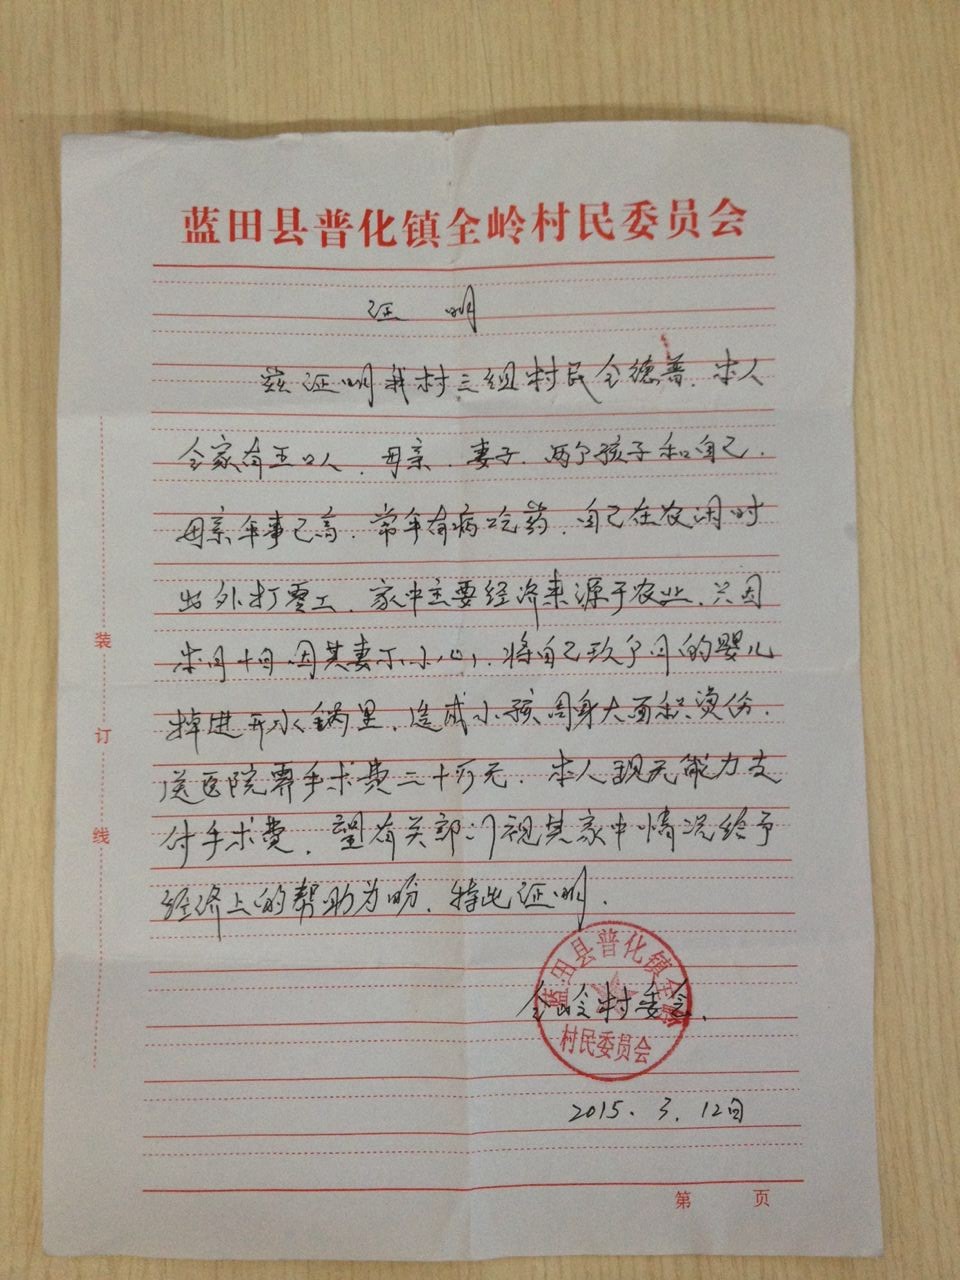 蓝田县普化镇全岭村民委员会
证 明
兹证明我村三组村民全德普.本人
全家有五口人.母亲.妻子.两个孩子和自己.
母亲年事已高.常年有病吃药.自己在农闲时
出外打零工.家中主要经济来源于农业.只因
本月十日因其妻不小心,将自己玖个月的婴儿
掉进开水锅里.造成小孩周身大面积烫伤.
送医院需手术费二十万元.本人现无能力支
付手术费.望有关部门视其家中情况给予
经济上的帮助为盼.特此证明.
全岭村委会.
蓝田县普化镇全岭
村民委员会
2015.3.12日
装
订
线
第 页